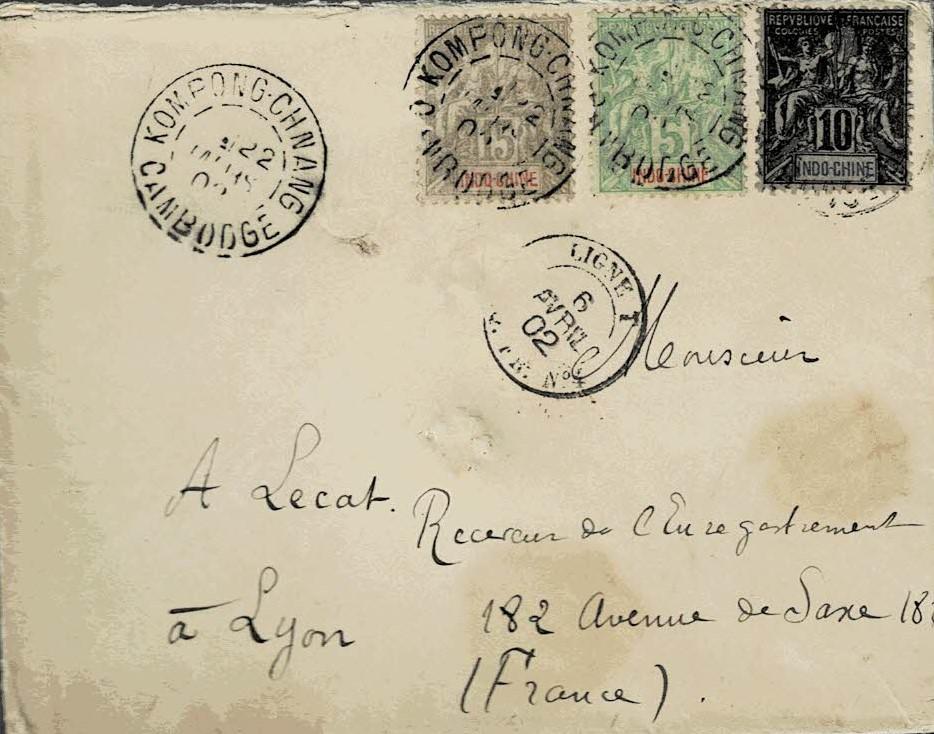 KOMPONG-CHNANG
22
CAMBODGE
KOMPONG-CHNANG
15
INDO-CHINE
KOMPONG-CHNANG
CAMBODGE
5
INDO-CHINE
REPVBLIQUE FRANÇAISE
COLONIES POSTES
10
INDO-CHINE
LIGNE
6
AVRIL
02
Nº4
Monsieur
A Lecat.
Receveur de l'Enregistrement
à Lyon
182 Avenue de Saxe 182
(France).